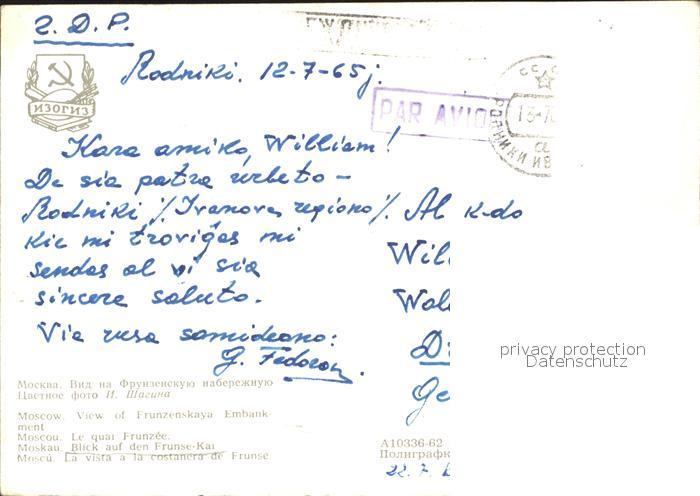 Г.Д.Р.
Rodniki. 12-7-65j.
ИЗОГИЗ
PAR AVION
Kara amiko, William!
De sia patra urbeto –
Rodniki /Ivanova regiono/.
kie mi troviĝas mi
sendas al vi sia
sincera saluto.
Via rusa samideano:
G. Fedorov.
Al k-do
Will
Wal
D
Ge
privacy protection
Datenschutz
Москва. Вид на Фрунзенскую набережную
Цветное фото И. Шагина
Moscow. View of Frunzenskaya Embank-
ment
Moscou. Le quai Frunzée.
Moskau. Blick auf den Frunse-Kai
Moscú. La vista a la costanera de Frunse
А10336-62
Полиграфк
22.7.